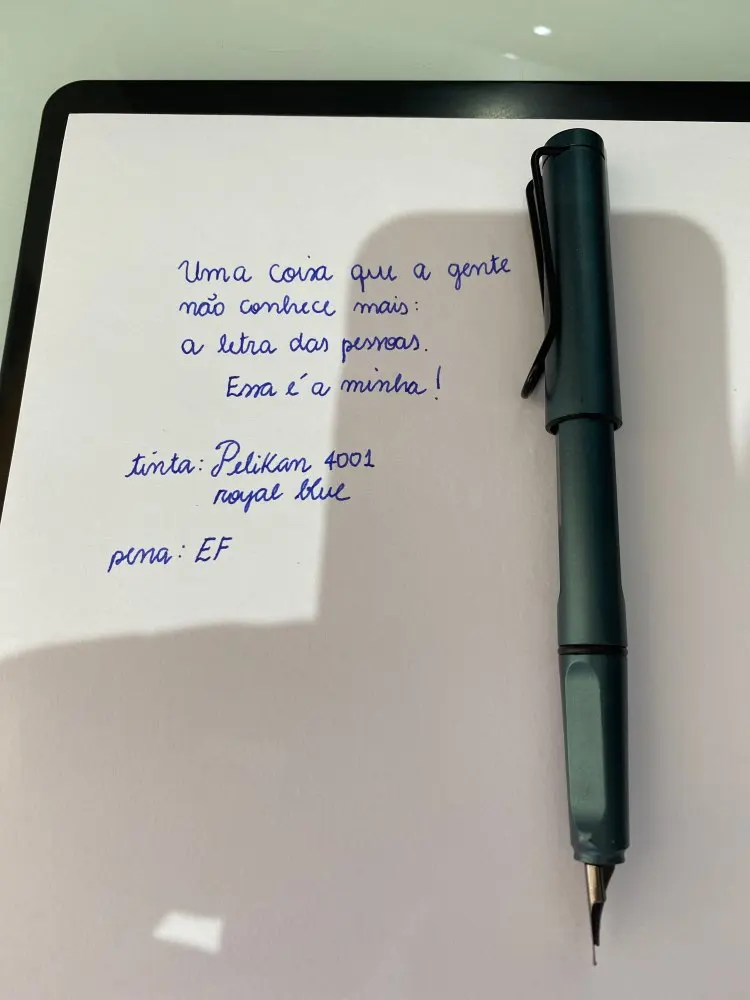 Uma coisa que a gente
não conhece mais:
a letra das pessoas.
Essa é a minha!
tinta: Pelikan 4001
royal blue
pena: EF